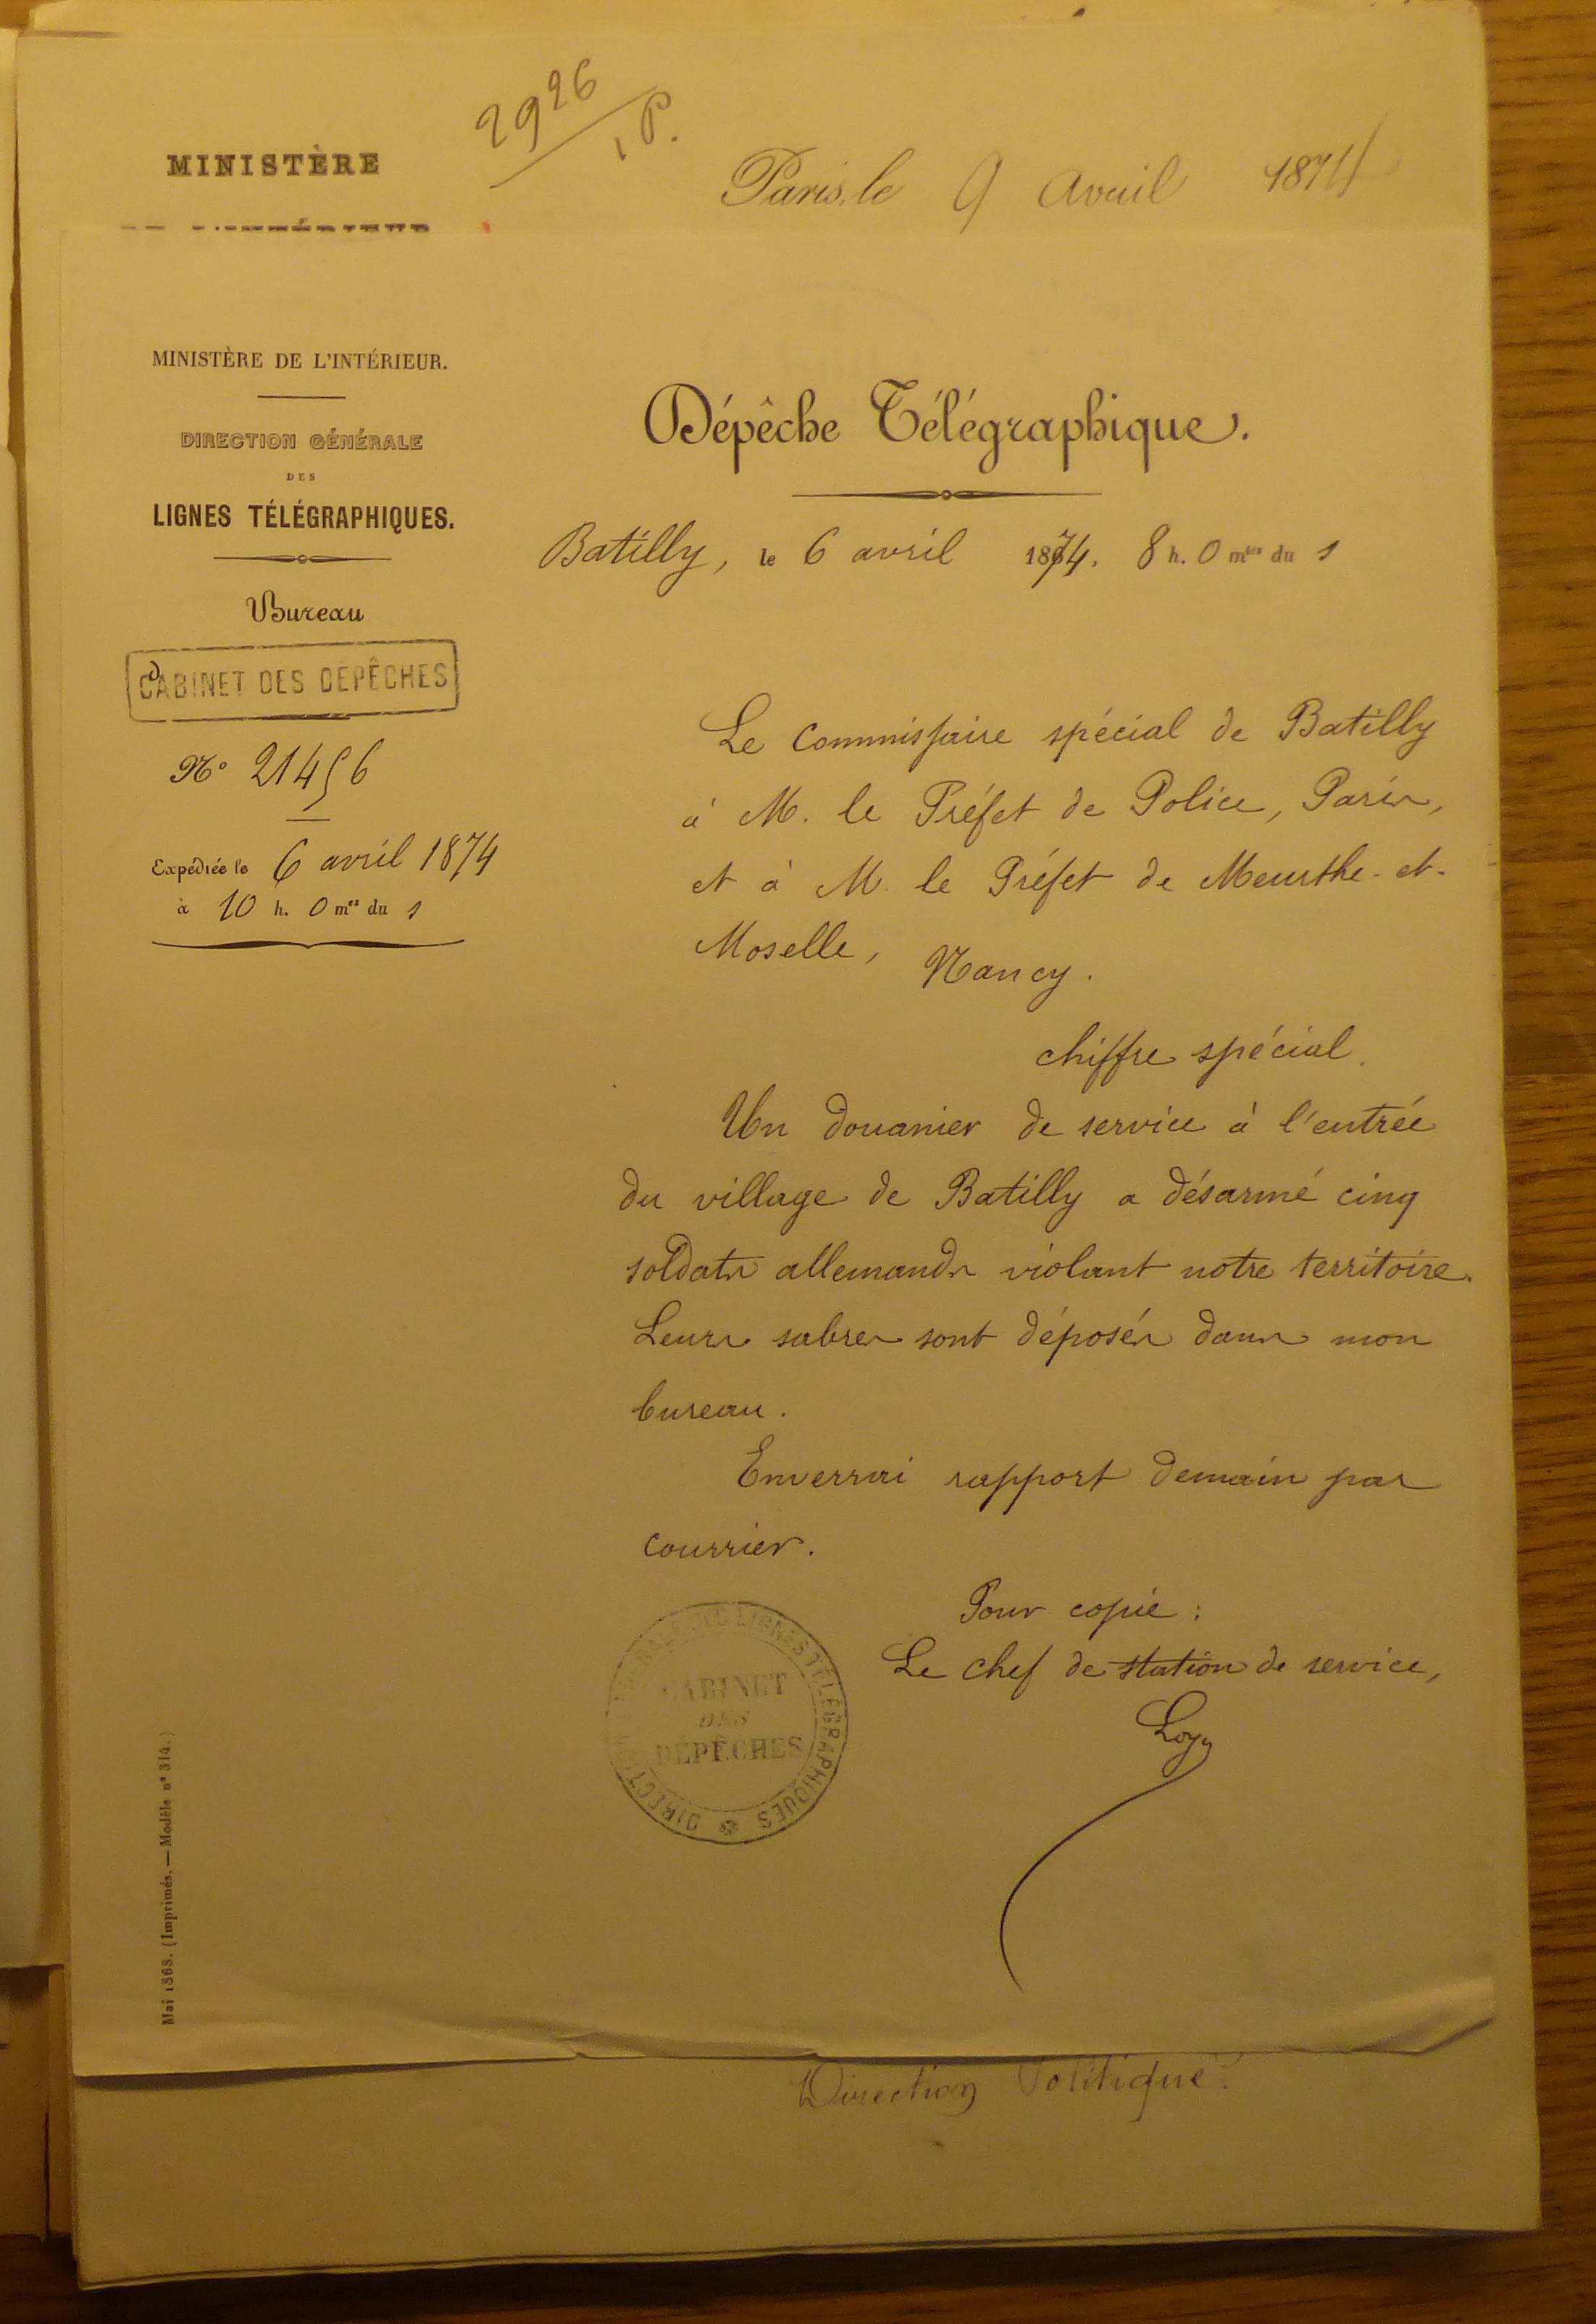 2926
1 P.
MINISTÈRE
Paris, le 9 Avril 1874
MINISTÈRE DE L'INTÉRIEUR.
DIRECTION GÉNÉRALE
DES
LIGNES TÉLÉGRAPHIQUES.
Bureau
CABINET DES DÉPÊCHES
N° 21456
Expédiée le 6 avril 1874
à 10 h. 0 mes du s
Dépêche Télégraphique.
Batilly, le 6 avril 1874. 8 h. 0 mtes du s
Le Commissaire spécial de Batilly
à M. le Préfet de Police, Paris,
et à M. le Préfet de Meurthe-et-
Moselle, Nancy.
chiffre spécial.
Un douanier de service à l'entrée
du village de Batilly a désarmé cinq
soldats allemands violant notre territoire.
Leurs sabres sont déposés dans mon
bureau.
Enverrai rapport demain par
courrier.
Pour copie :
Le chef de station de service,
DIRECTION GÉNÉRALE DES LIGNES TÉLÉGRAPHIQUES
CABINET
DES
DÉPÊCHES
Mai 1868. (Imprimés. — Modèle n° 314.)
Direction Politique.